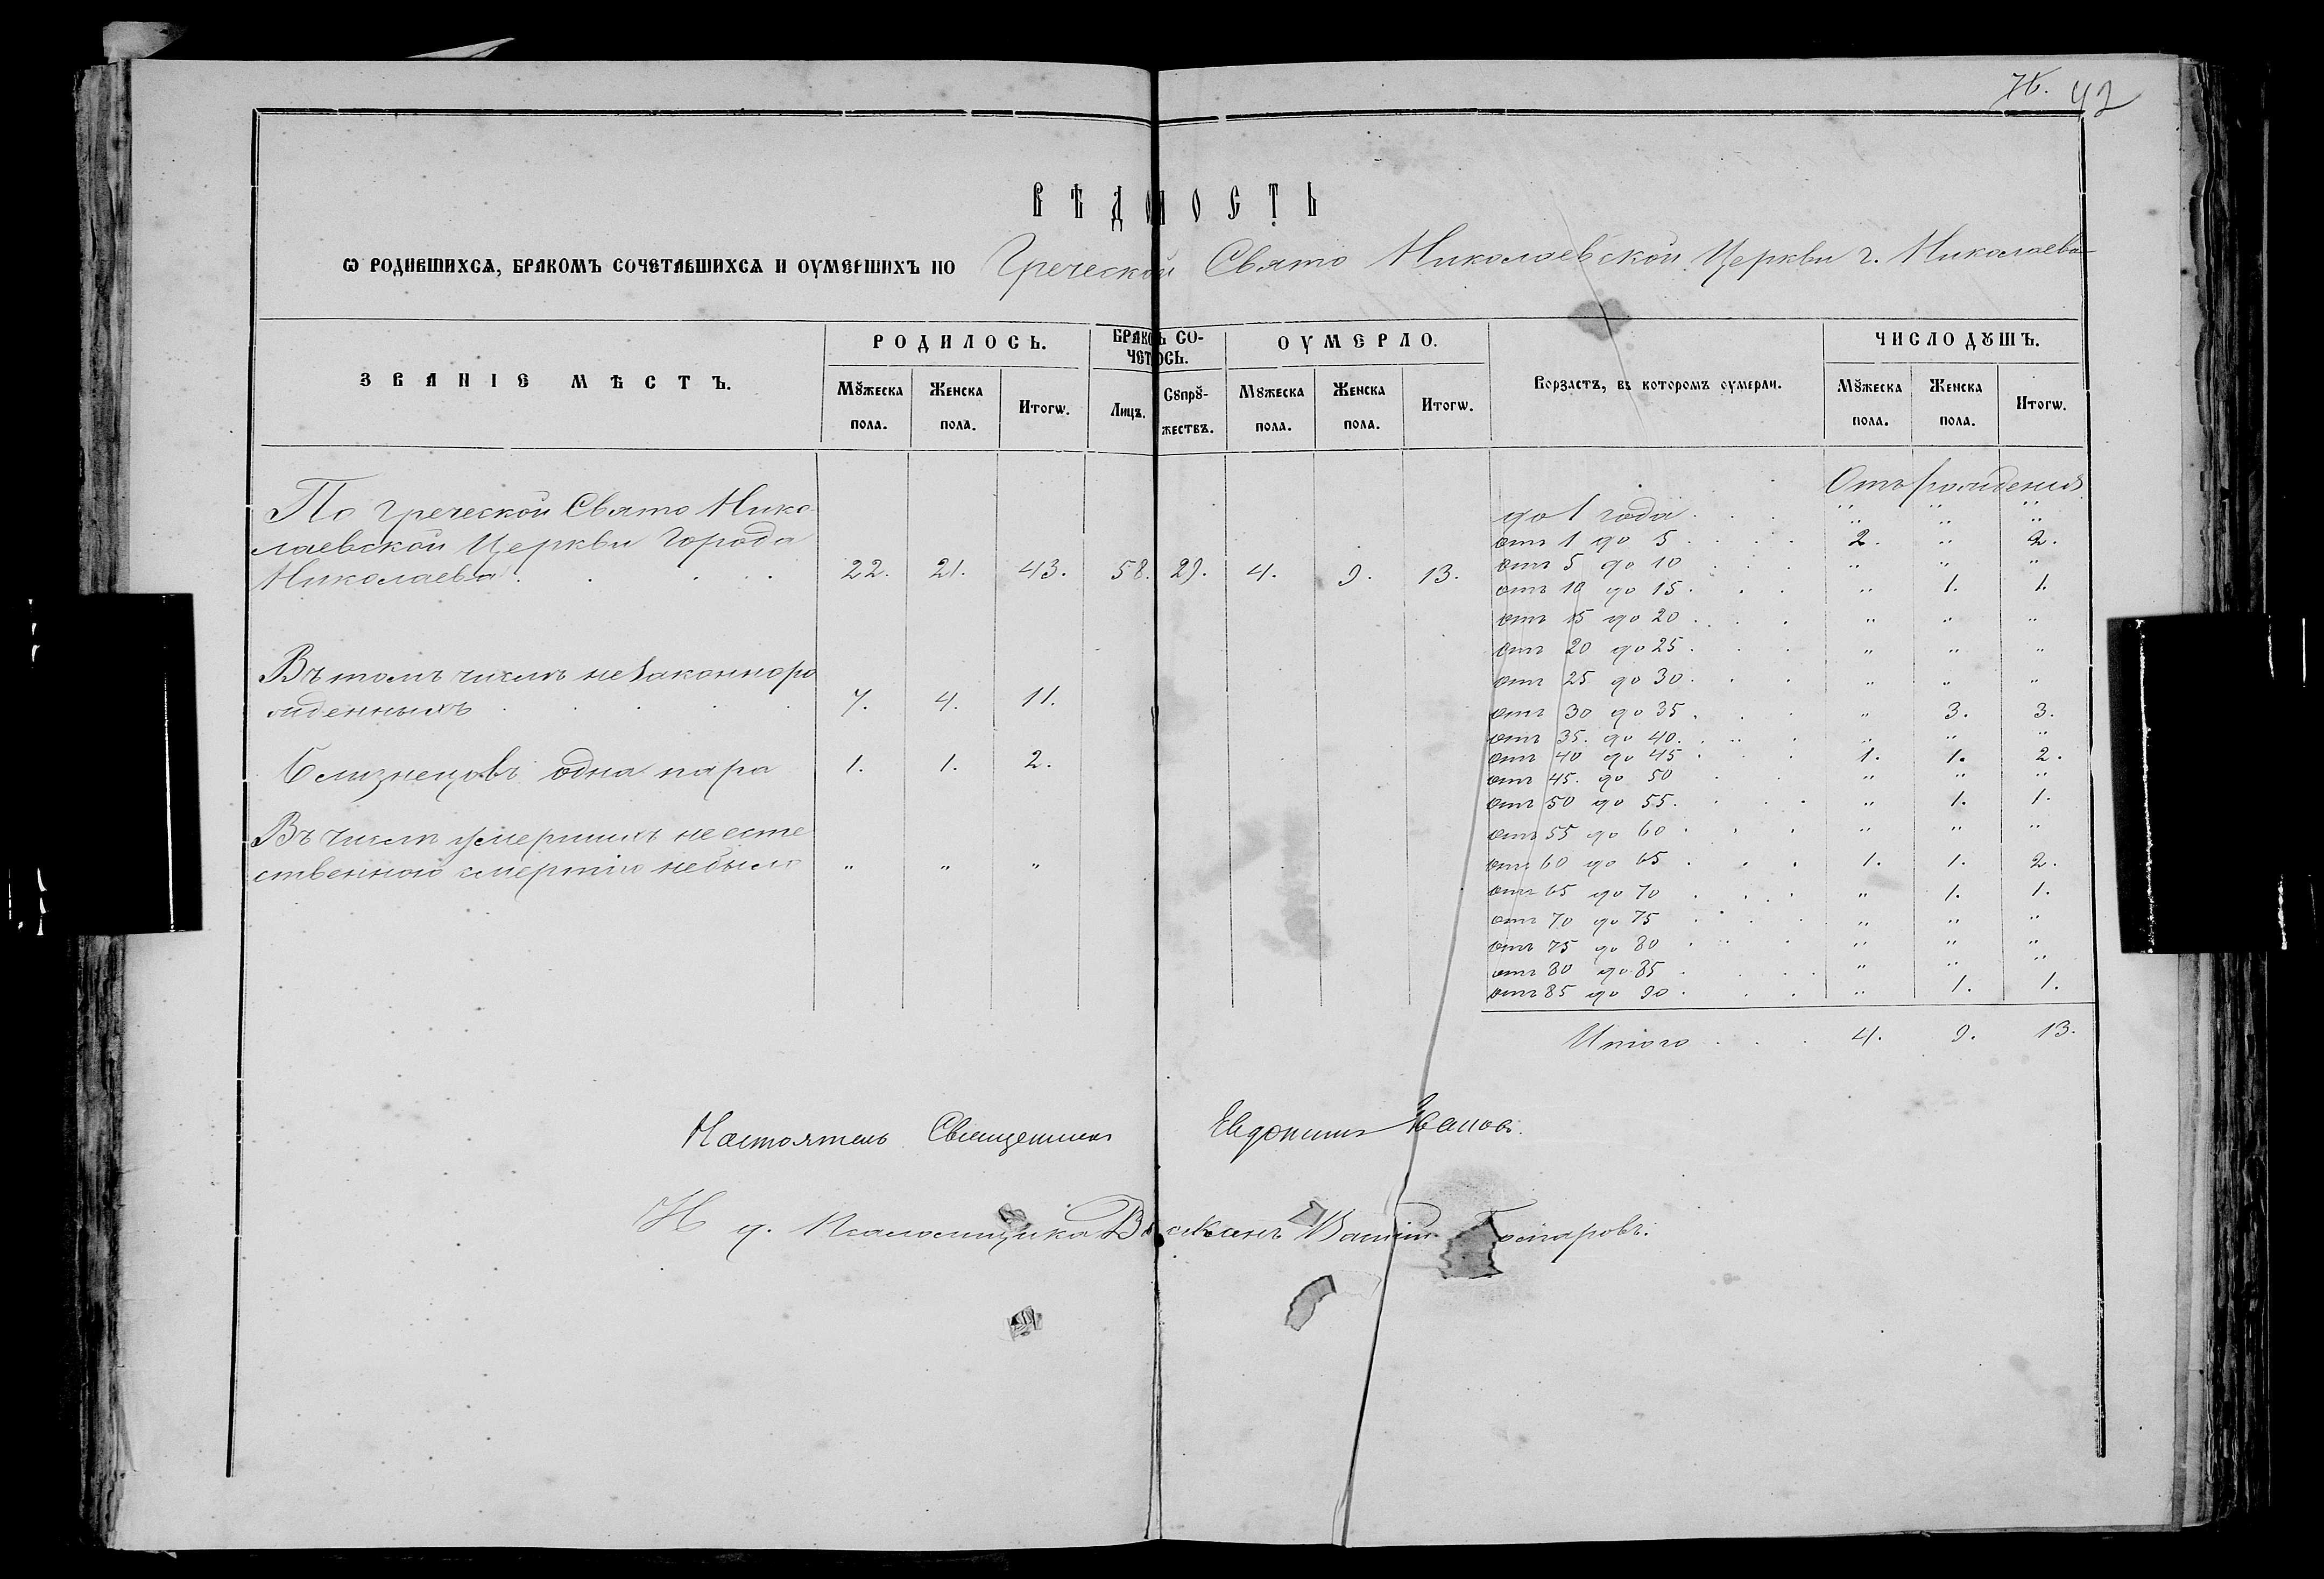 42
ВѢДОМОСТЬ
Ѡ РОДИВШИХСѦ, БРАКОМЪ СОЧЕТАВШИХСѦ И ОУМЕРШИХЪ ПО Греческой Свято Николаевской Церкви г. Николаева
ЗВАНІЕ МѢСТЪ. РОДИЛОСЬ. БРАКОМЪ СО- ОУМЕРЛО. Возрастъ, въ которомъ оумерли. ЧИСЛО ДꙊШЪ.
ЧЕТОСЬ.
Мꙋжеска Женска Итогѡ. Лицъ. Сꙋпрꙋ- Мꙋжеска Женска Итогѡ. Мꙋжеска Женска Итогѡ.
пола. пола. жествъ. пола. пола. пола. пола.
Отъ рожденія
По Греческой Свято Нико
лаевской Церкви Города
Николаева . . . . 22. 21. 43. 58. 29. 4. 9. 13.
Въ томъ числѣ незаконноро
жденныхъ . . . . . 7. 4. 11.
Близнецовъ одна пара 1. 1. 2.
Въ числѣ умершихъ не есте
ственною смертію небыло " " "
до 1 года . . . " " "
отъ 1 до 5 . . . . 2. " 2.
отъ 5 до 10 . . . " " "
отъ 10 до 15 . . . " 1. 1.
отъ 15 до 20 . . . " " "
отъ 20 до 25 . . . " " "
отъ 25 до 30 . . . " " "
отъ 30 до 35 . . . " 3. 3.
отъ 35 до 40 . . . " " "
отъ 40 до 45 . . . 1. 1. 2.
отъ 45 до 50 . . " " "
отъ 50 до 55 . . . . " 1. 1.
отъ 55 до 60 . . . " " "
отъ 60 до 65 . . . 1. 1. 2.
отъ 65 до 70 . . . . " 1. 1.
отъ 70 до 75 . . . . " " "
отъ 75 до 80 . . . " " "
отъ 80 до 85 . . . . " " "
отъ 85 до 90 . . . " 1. 1.
Итого . . . 4. 9. 13.
Настоятель Священникъ Евдокимъ Ивановъ.
И д. Псаломщика